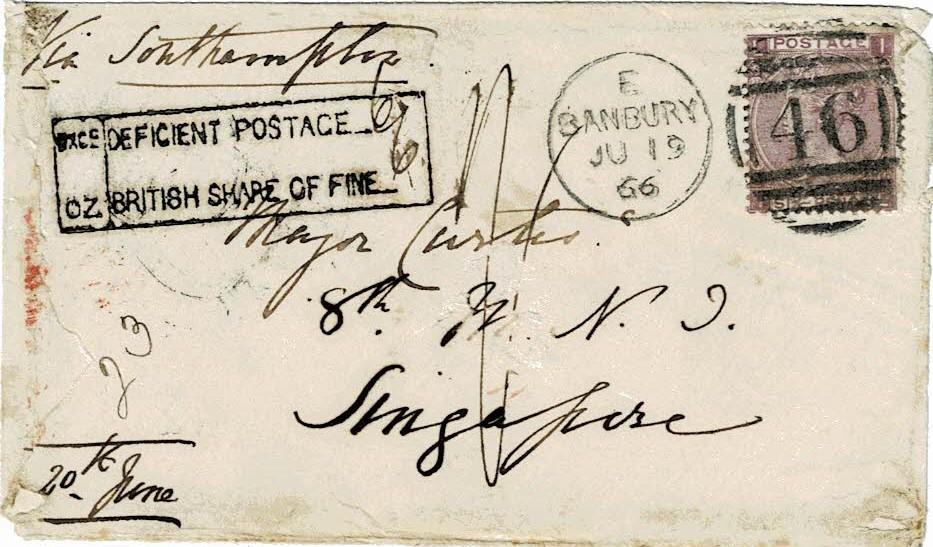 Via Southampton.
POSTAGE I
E
BANBURY
JU 19
66
C
46
DEFICIENT POSTAGE 6
OZ BRITISH SHARE OF FINE 6
Major Curtis.
8th M. N. I.
Singapore
23
20th June